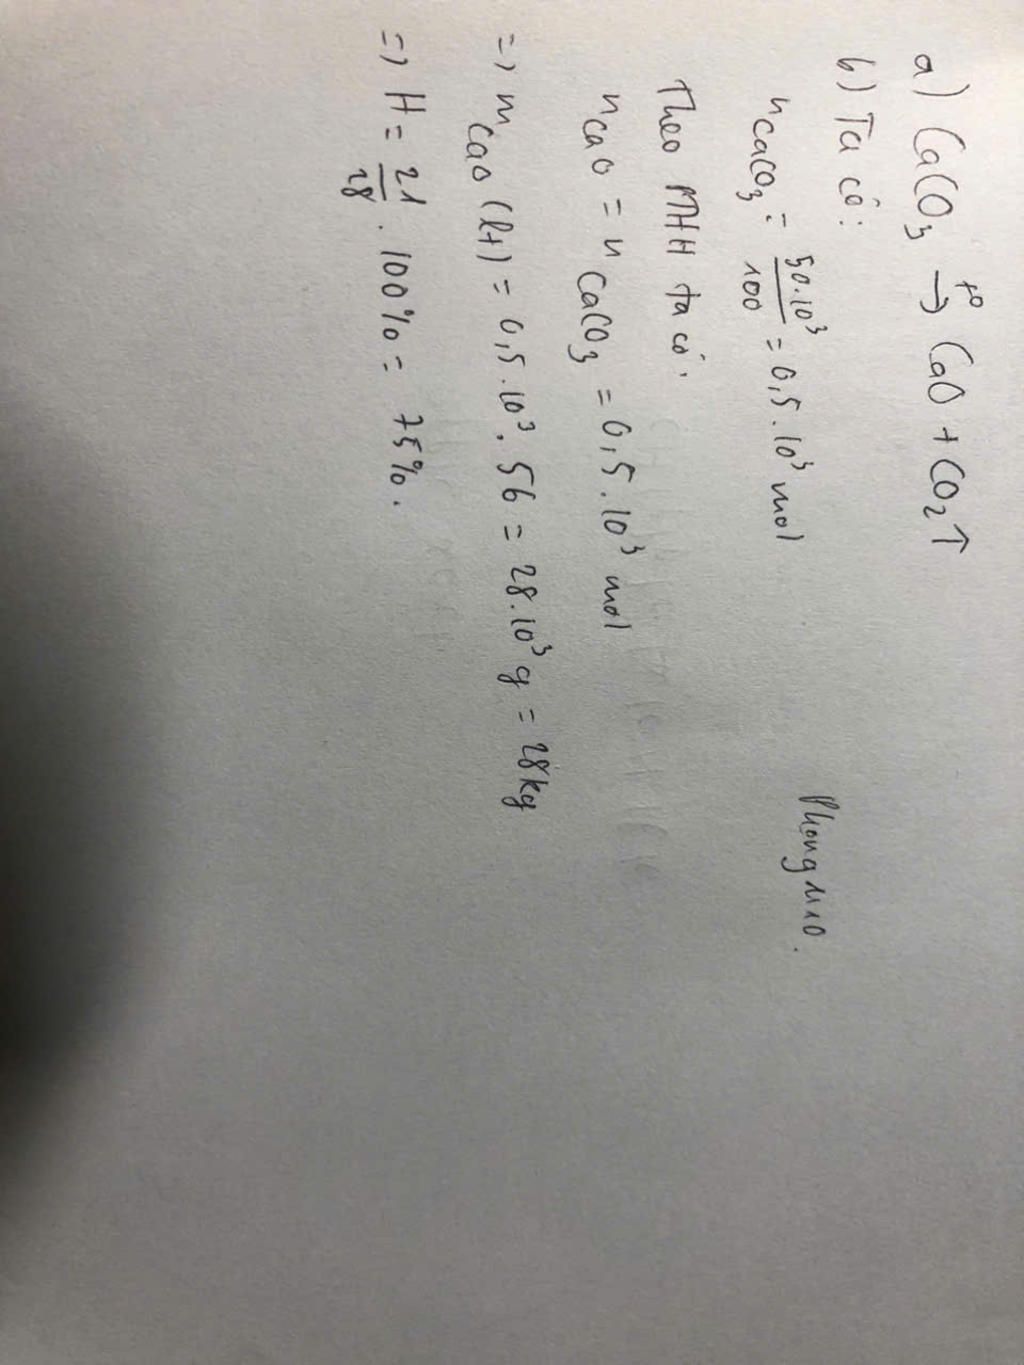 a) CaCO3 →t° CaO + CO2↑
b) Ta có:
nCaCO3 = 50.10³/100 = 0,5.10³ mol
Phong
Theo PTHH ta có:
nCaO = nCaCO3 = 0,5.10³ mol
=> mCaO (lt) = 0,5.10³.56 = 28.10³g = 28kg
=> H = 21/28 . 100% = 75%.